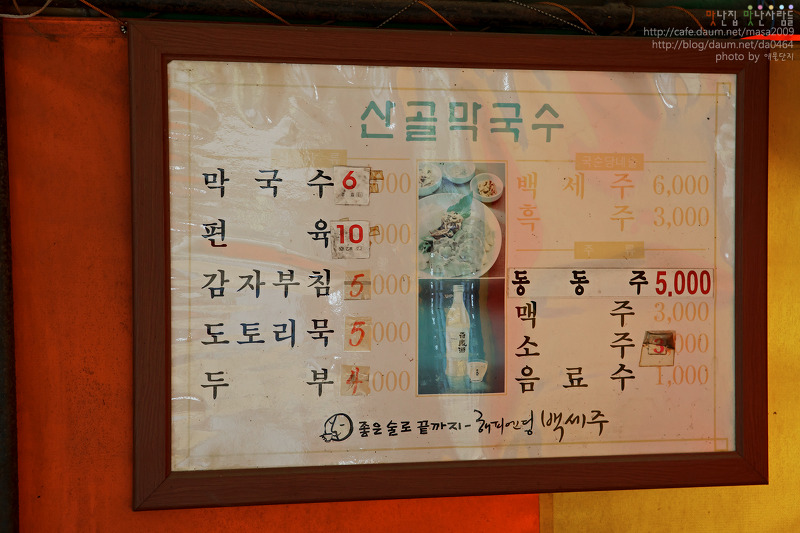 맛난집 맛난사람들
http://cafe.daum.net/masa2009
http://blog/daum.net/da0464
photo by 애물단지
산골막국수
막국수 6,000
편육 10,000
감자부침 5,000
도토리묵 5,000
두부 4,000
백세주 6,000
흑주 3,000
주
동동주 5,000
맥주 3,000
소주 3,000
음료수 1,000
좋은술로 끝까지-해피엔딩 백세주